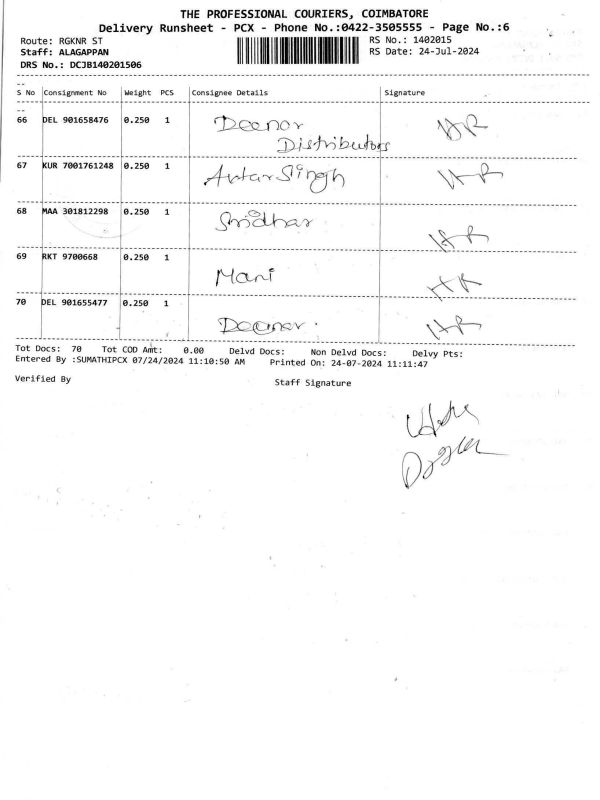 THE PROFESSIONAL COURIERS, COIMBATORE
Delivery Runsheet - PCX - Phone No.:0422-3505555 - Page No.:6
Route: RGKNR ST
RS No.: 1402015
Staff: ALAGAPPAN
RS Date: 24-Jul-2024
DRS No.: DCJB140201506
S No Consignment No Weight PCS Consignee Details Signature
66 DEL 901658476 0.250 1 Deenor
Distributors
67 KUR 7001761248 0.250 1 Avtar Singh
68 MAA 301812298 0.250 1 Sridhar
69 RKT 9700668 0.250 1 Mani
70 DEL 901655477 0.250 1 Deenor.
Tot Docs: 70 Tot COD Amt: 0.00 Delvd Docs: Non Delvd Docs: Delvy Pts:
Entered By :SUMATHIPCX 07/24/2024 11:10:50 AM Printed On: 24-07-2024 11:11:47
Verified By Staff Signature